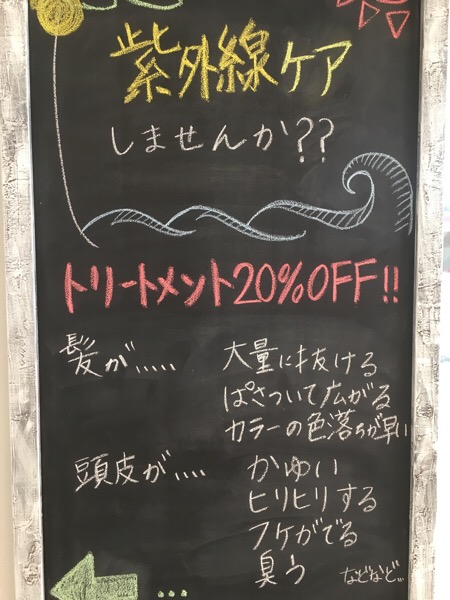 紫外線ケア
しませんか??
トリートメント20%OFF!!
髪が.....
大量に抜ける
ぱさついて広がる
カラーの色落ちが早い
頭皮が....
かゆい
ヒリヒリする
フケがでる
臭う
などなど...
...